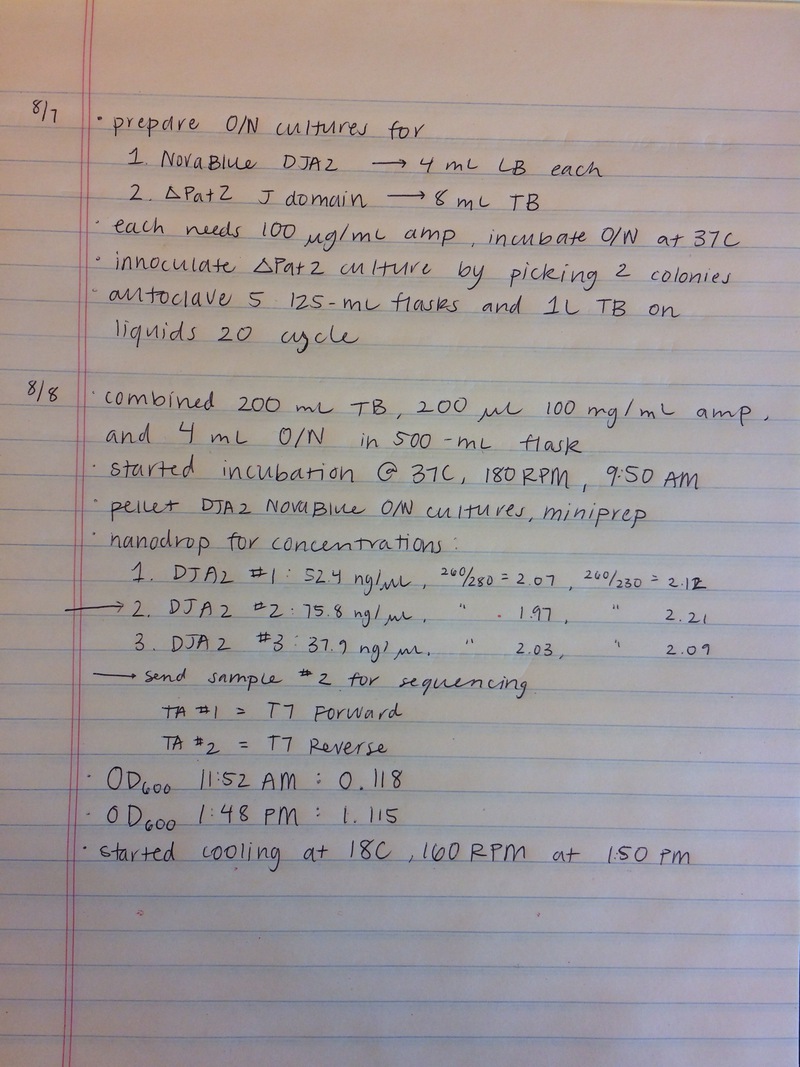 8/7
· prepare O/N cultures for
1. NovaBlue DJA2 → 4 mL LB each
2. ΔPat2 J domain → 8 mL TB
· each needs 100 μg/mL amp, incubate O/N at 37C
· innoculate ΔPat2 culture by picking 2 colonies
· autoclave 5 125-mL flasks and 1L TB on
liquids 20 cycle
8/8
· combined 200 mL TB, 200 μL 100 mg/mL amp,
and 4 mL O/N in 500-mL flask
· started incubation @ 37C, 180 RPM, 9:50 AM
· pellet DJA2 NovaBlue O/N cultures, miniprep
· nanodrop for concentrations:
1. DJA2 #1: 52.4 ng/μL, 260/280 = 2.07, 260/230 = 2.12
→ 2. DJA2 #2: 75.8 ng/μL, " 1.97, " 2.21
3. DJA2 #3: 37.9 ng/μL, " 2.03, " 2.09
→ send sample #2 for sequencing
TA #1 = T7 Forward
TA #2 = T7 Reverse
· OD600 11:52 AM : 0.118
· OD600 1:48 PM : 1.115
· started cooling at 18C, 160 RPM at 1:50 PM